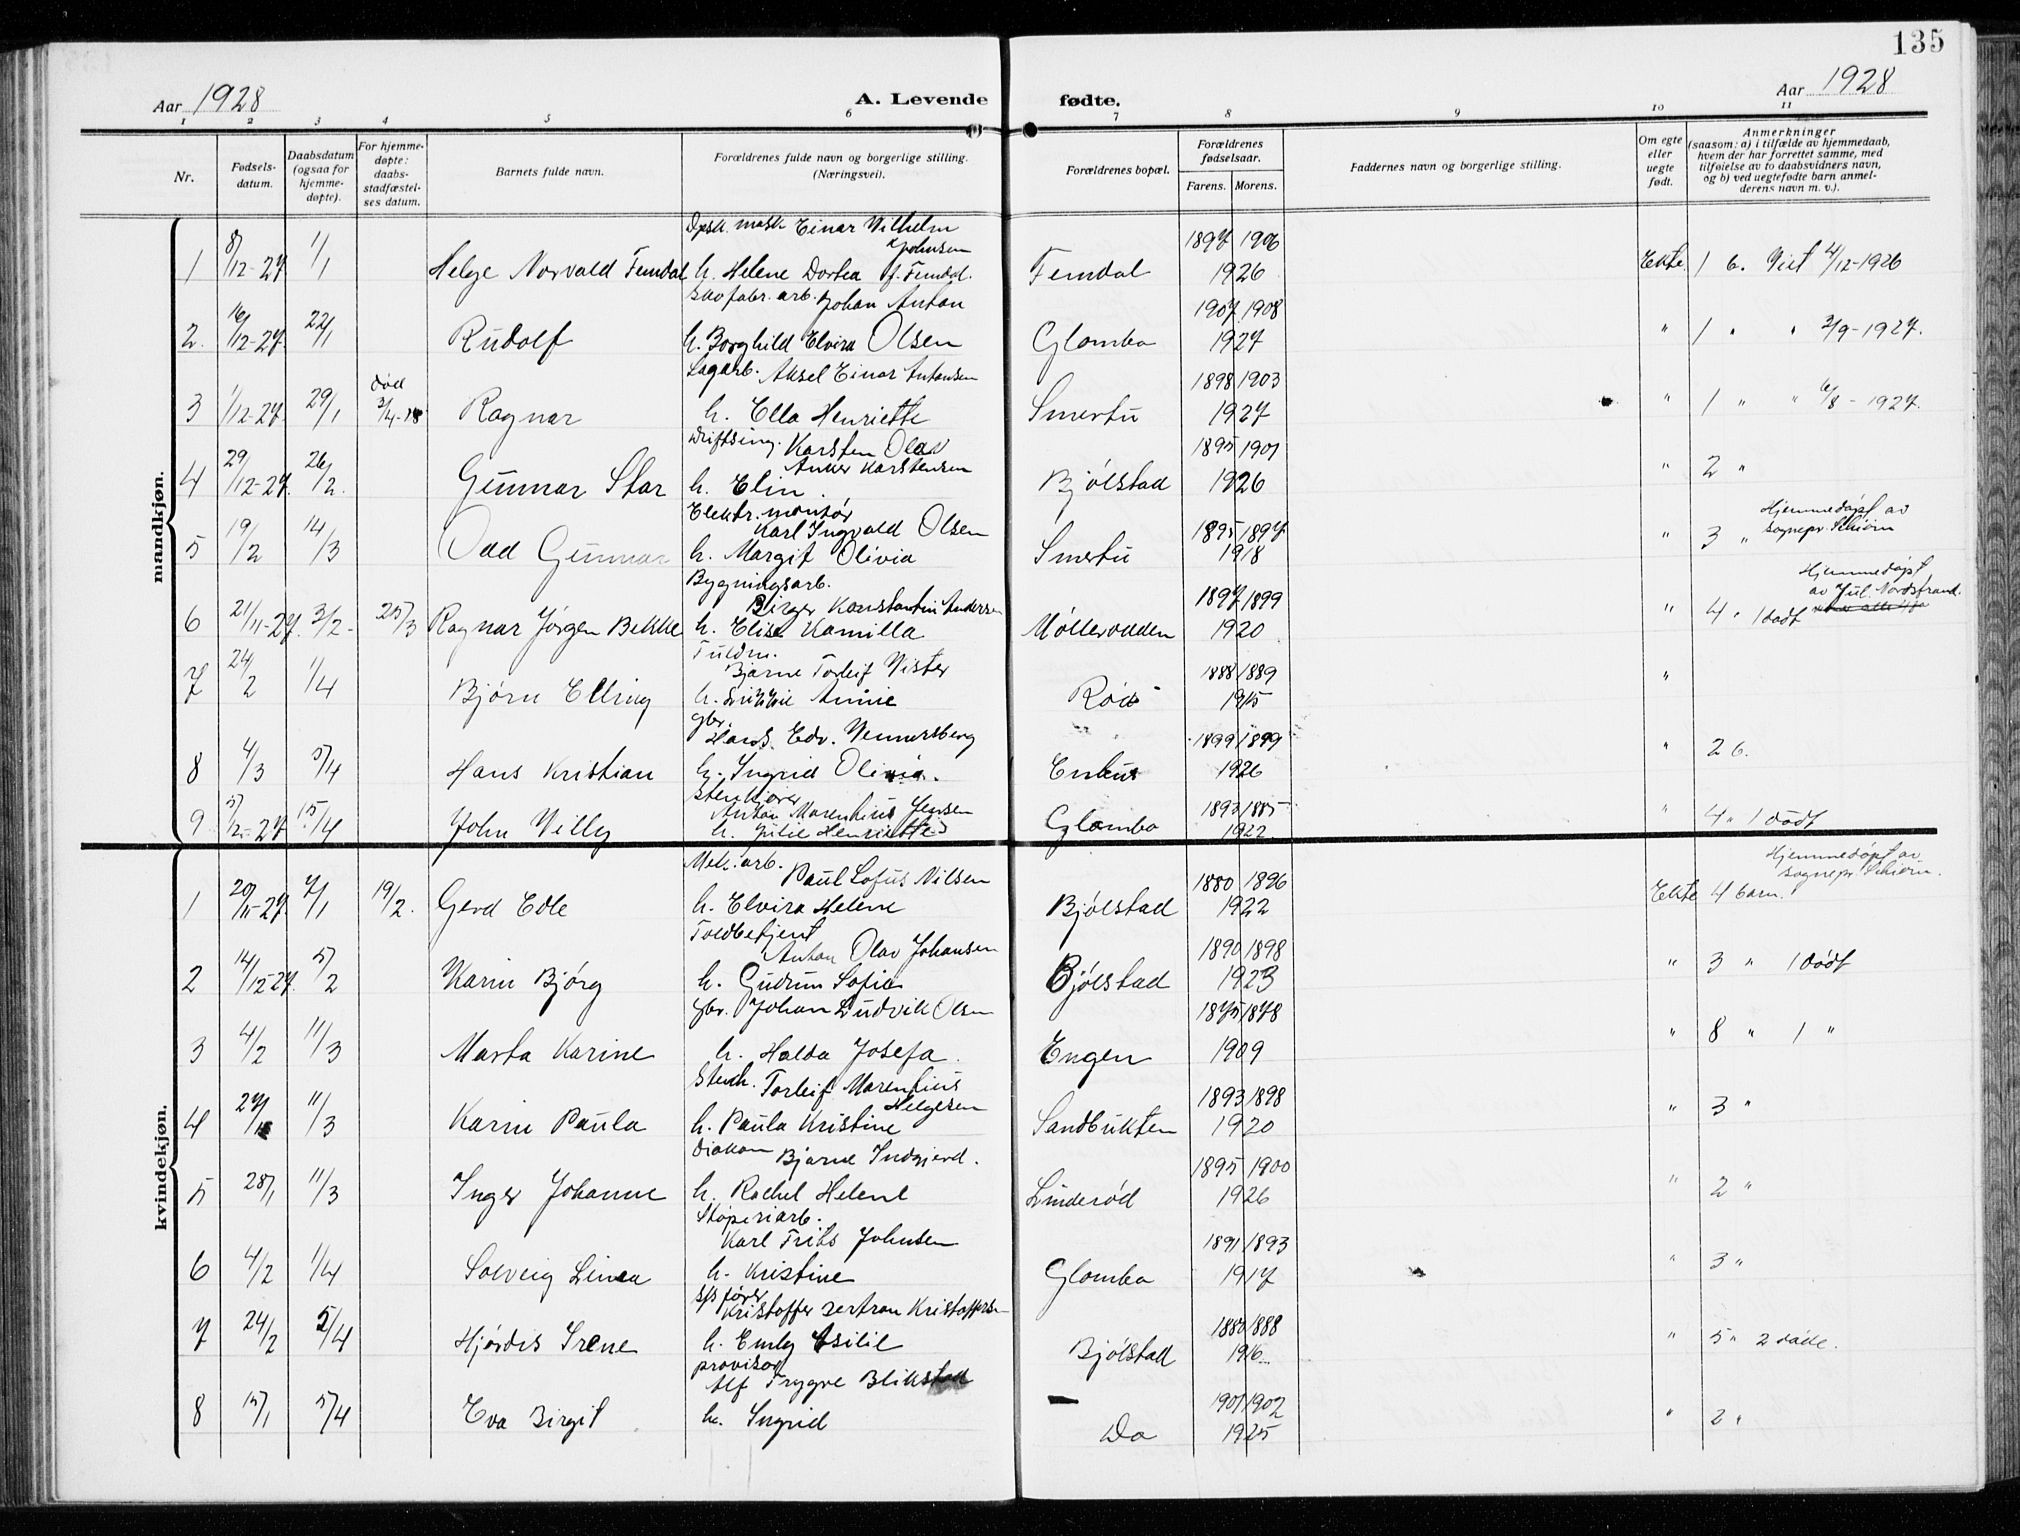 135
Aar 1928
A. Levende fødte.
Aar 1928
1 2 3 4 5 6 7 8 9 10 11
Nr.
Fødsels-
datum.
Daabsdatum
(ogsaa for
hjemme-
døpte).
For hjemme-
døpte:
daabs-
stadfæstel-
ses datum.
Barnets fulde navn.
Forældrenes fulde navn og borgerlige stilling.
(Næringsvei).
Forældrenes bopæl.
Forældrenes
fødselsaar.
Farens. Morens.
Faddernes navn og borgerlige stilling.
Om egte
eller
uegte
født.
Anmerkninger
(saasom: a) i tilfælde av hjemmedaab,
hvem der har forrettet samme, med
tilføielse av to daabsvidners navn,
og b) ved uegtefødte barn anmel-
derens navn m. v.).
mandkjøn.
Einar Vilhelm
Johnsen 1897 1906
1 8/12-27 1/1 Helge Norvald Femdal h. Helene Dortea f. Femdal. Femdal 1926 Ekte 1 b. Viet 4/12-1926
Skofabr. arb. Johan Anton 1907 1908
2. 16/12-27. 22/1 Rudolf h. Borghild Elvira Olsen Glombo 1927 " 1 " " 3/9-1927.
Sagarb. Aksel Einar Antonsen 1898 1903
3 1/12-27. 29/1 død 3/4-28 Ragnar h. Ella Henriette Smertu 1927 " 1 " " 6/8-1927.
Driftsing. Karsten Olav
Anker Karstensen 1895 1901
4 29/12-27. 26/2. Gunnar Star h. Elin. Bjølstad 1926 " 2 "
Elektr. montør
Karl Ingvald Olsen 1895 1897
Hjemmedøpt av
sognepr. Schiörn
5 19/2 14/3 Odd Gunnar h. Margit Olivia Smertu 1918 " 3 "
Bygningsarb.
Birger Konstantin Andersen 1897 1899
Hjemmedøpt
av Jul. Nordstrand.
6 21/11-27. 3/2- 25/3 Ragnar Jørgen Bekke h. Elise Kamilla Møllerodden 1920 " 4 " 1 dødt
Fuldm.
Bjarne Torleif Vister 1888 1889
7 24/2 1/4 Bjørn Elling h. Annie Rød 1915 "
gbr.
Hans Edv. Vennersberg 1899 1899
8 4/3 5/4 Hans Kristian h. Ingrid Olivia. Enhus 1926 " 2 b.
Stenkjører
Anton Marentius Jensen 1893 1885
9 5/12-27 15/4 John Villy h. Julie Henriette Glombo 1922 " 4 " 1 dødt
kvindekjøn.
Mek. arb.
Paul Lofus Nilsen 1880 1896
Hjemmedøpt av
sognepr. Schiörn.
1 20/11-27. 7/1 19/2. Gerd Edle h. Elvira Helene Bjølstad 1922 Ekte 4 barn.
Toldbetjent
Anton Olav Johansen 1890 1898
2 14/12-27. 5/2 Karin Bjørg h. Gudrun Sofie Bjølstad 1923 " 3 " 1 dødt
gbr. Johan Ludvik Olsen 1875 1878
3 4/2 11/3 Marta Karine h. Halda Josefa. Engen 1909 " 8 " 1 "
Stenh. Torleif Marentius
Helgesen 1893 1898
4 11/3 Karin Paula h. Paula Kristine Sandbukten 1920 " 3 "
Diakon Bjarne Indgjerd. 1895 1900
5 28/1 11/3 Inger Johanne h. Rachel Helene Linderød 1926 " 2 "
Støperiarb.
Karl Frits Johnsen 1891 1893
6 4/2 1/4 Solveig Linea h. Kristine Glombo 1917 " 3 "
s/s fører
Kristoffer Kristoffersen 1888
7 24/2 5/4 Hjørdis Irene h. Emly Bjølstad 1916. " 5 " 2 døde.
provisor
Alf Trygve Blikstad 1901 1902
8 15/1 5/4 Eva Birgit h. Ingrid Do 1925 " 2 "